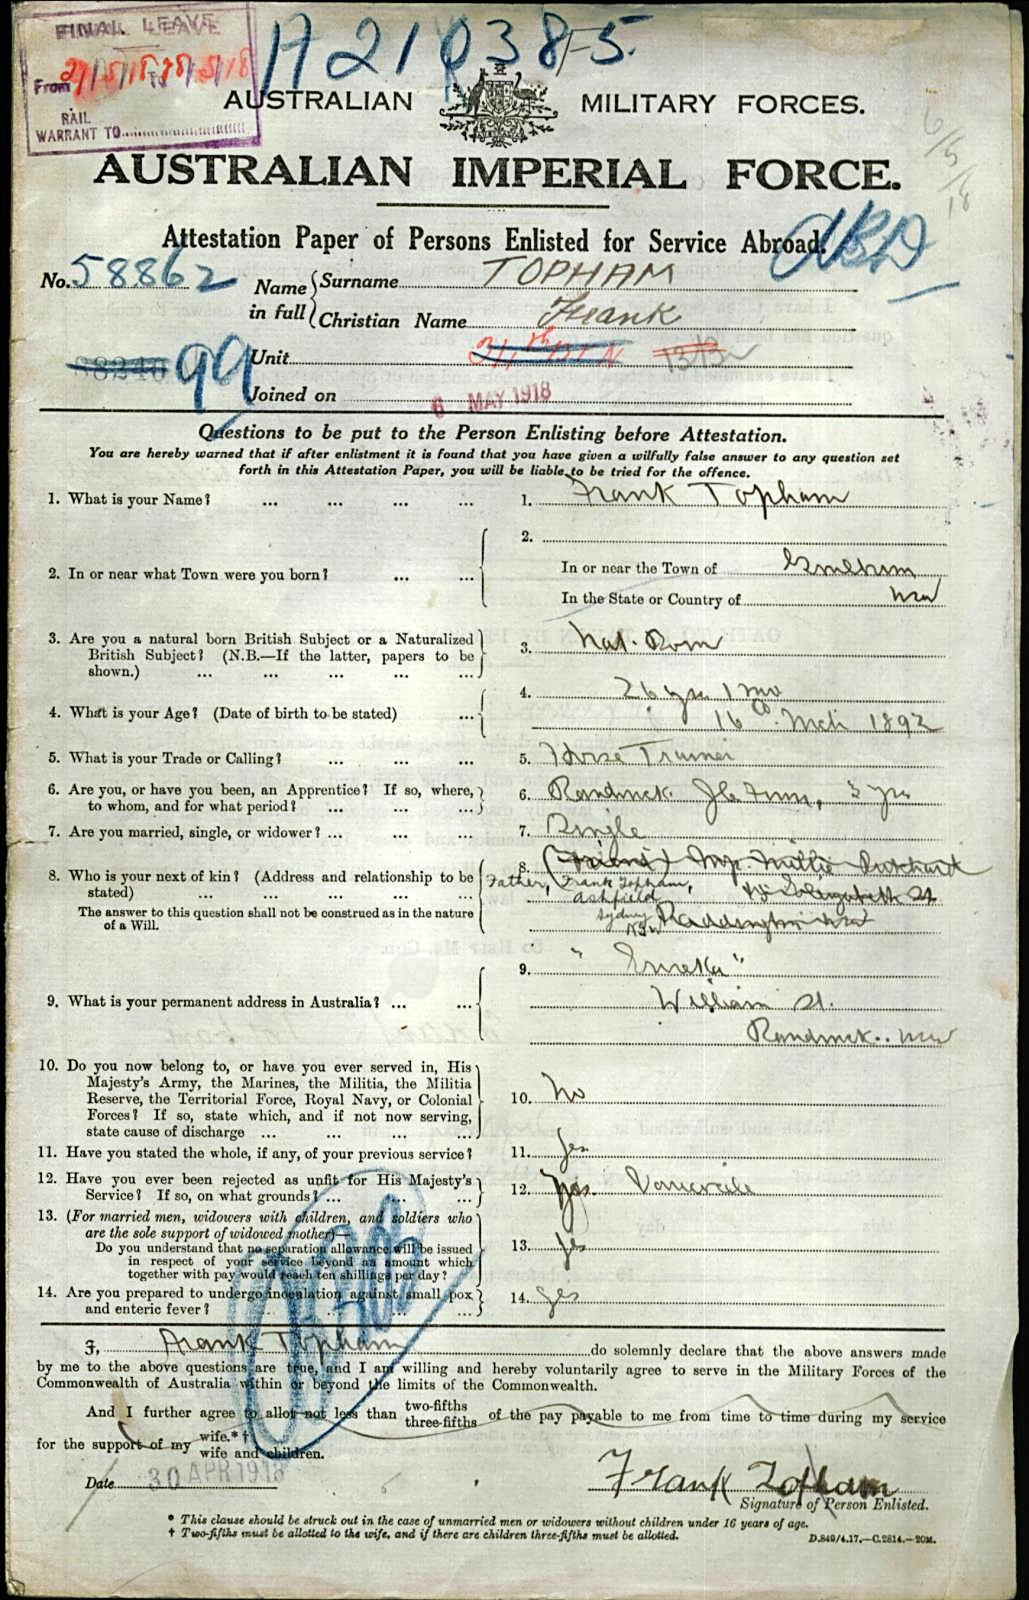 FINAL LEAVE
From 27/5/18 to 28/5/18
RAIL
WARRANT TO
A 21 038-5
AUSTRALIAN MILITARY FORCES.
6/5/18
AUSTRALIAN IMPERIAL FORCE.
Attestation Paper of Persons Enlisted for Service Abroad.
No. 58862
Name in full { Surname TOPHAM
Christian Name Frank
99 Unit
Joined on 6 MAY 1918
Questions to be put to the Person Enlisting before Attestation.
You are hereby warned that if after enlistment it is found that you have given a wilfully false answer to any question set
forth in this Attestation Paper, you will be liable to be tried for the offence.
1. What is your Name? ... ... ... ... 1. Frank Topham
2. In or near what Town were you born? ... ... 2.
In or near the Town of
In the State or Country of NSW
3. Are you a natural born British Subject or a Naturalized
British Subject? (N.B.—If the latter, papers to be
shown.) ... ... ... ... ... 3. Nat. Born
4. What is your Age? (Date of birth to be stated) ... 4. 26 yrs 1 mo
16th Mch 1892
5. What is your Trade or Calling? ... ... ... 5. Horse Trainer
6. Are you, or have you been, an Apprentice? If so, where,
to whom, and for what period? ... ... ... 6. Randwick 3 yrs
7. Are you married, single, or widower? ... ... ... 7. Single
8. Who is your next of kin? (Address and relationship to be
stated) ... ... ... ... ... 8. (Friend) Mrs.
Father, Frank Topham,
Ashfield, Elizabeth St
Sydney Paddington NSW
NSW
The answer to this question shall not be construed as in the nature
of a Will.
9. What is your permanent address in Australia? ... ... 9. "Eureka"
William St.
Randwick.. NSW
10. Do you now belong to, or have you ever served in, His
Majesty's Army, the Marines, the Militia, the Militia
Reserve, the Territorial Force, Royal Navy, or Colonial
Forces? If so, state which, and if not now serving,
state cause of discharge ... ... ... ... 10. No
11. Have you stated the whole, if any, of your previous service? 11. Yes
12. Have you ever been rejected as unfit for His Majesty's
Service? If so, on what grounds? ... ... ... 12. Yes. Varicocele
13. (For married men, widowers with children, and soldiers who
are the sole support of widowed mother)—
Do you understand that no separation allowance will be issued
in respect of your service beyond an amount which
together with pay would reach ten shillings per day? 13. Yes
14. Are you prepared to undergo inoculation against small pox
and enteric fever? ... ... ... ... 14. Yes
I, Frank Topham do solemnly declare that the above answers made
by me to the above questions are true, and I am willing and hereby voluntarily agree to serve in the Military Forces of the
Commonwealth of Australia within or beyond the limits of the Commonwealth.
And I further agree to allot not less than two-fifths
three-fifths of the pay payable to me from time to time during my service
for the support of my wife.* †
wife and children.
Date 30 APR 1918
Frank Topham
Signature of Person Enlisted.
* This clause should be struck out in the case of unmarried men or widowers without children under 16 years of age.
† Two-fifths must be allotted to the wife, and if there are children three-fifths must be allotted.
D.849/4.17.—C.2814.—20M.